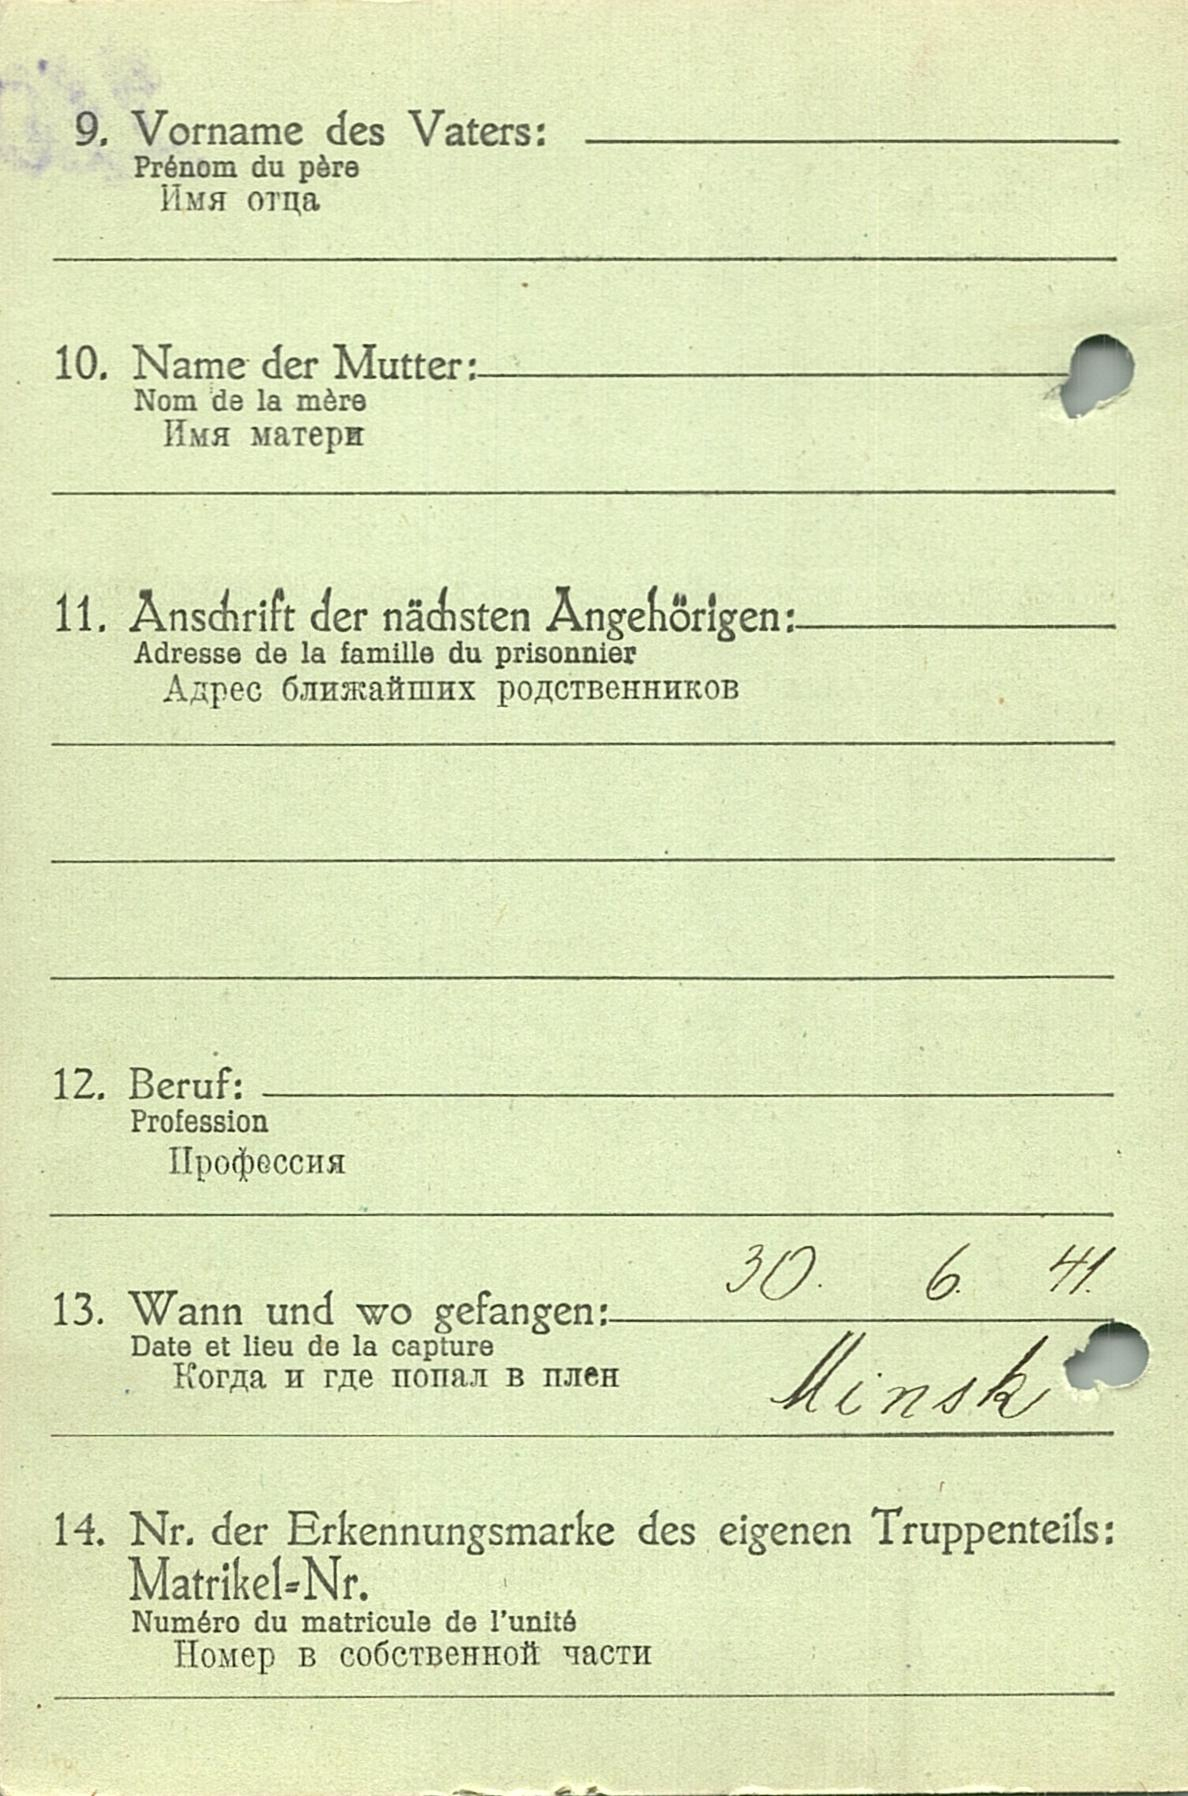 9. Vorname des Vaters:
Prénom du père
Имя отца
10. Name der Mutter:
Nom de la mère
Имя матери
11. Anschrift der nächsten Angehörigen:
Adresse de la famille du prisonnier
Адрес ближайших родственников
12. Beruf:
Profession
Профессия
30. 6. 41.
13. Wann und wo gefangen:
Date et lieu de la capture
Когда и где попал в плен
Minsk
14. Nr. der Erkennungsmarke des eigenen Truppenteils:
Matrikel=Nr.
Numéro du matricule de l'unité
Номер в собственной части